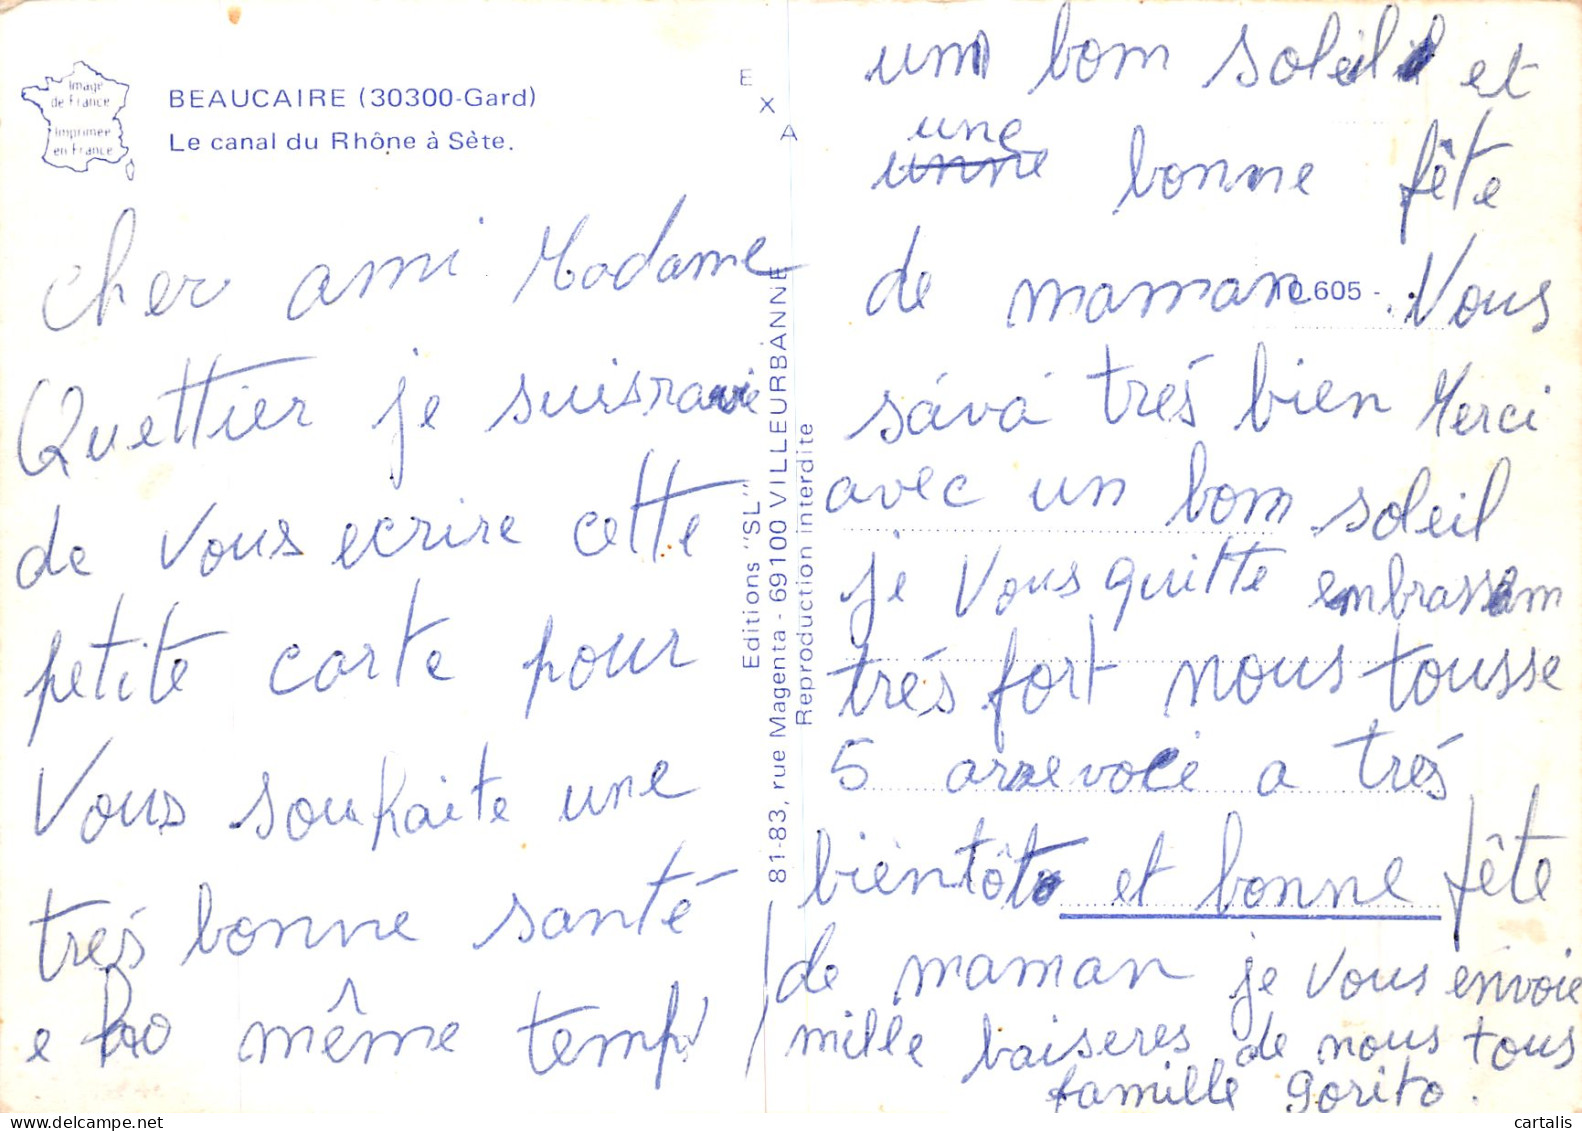 Image
de France
Imprimée
en France
BEAUCAIRE (30300-Gard)
Le canal du Rhône à Sète.
E X A
cher ami Madame
Quettier je suis ravie
de vous ecrire cette
petite carte pour
Vous souhaite une
trés bonne santé
e même temp
Editions "SL"
81-83, rue Magenta - 69100 VILLEURBANNE
Reproduction interdite
10.605 -
un bom soleil et
une
unne bonne fête
de maman. Vous
sává trés bien Merci
avec un bom soleil
je Vous quitte embrassem
trés fort nous tousse
5 arrevoci a trés
bientôt et bonne fête
de maman je Vous envoie
mille baiseres de nous tous
famille gorito.
cartalis